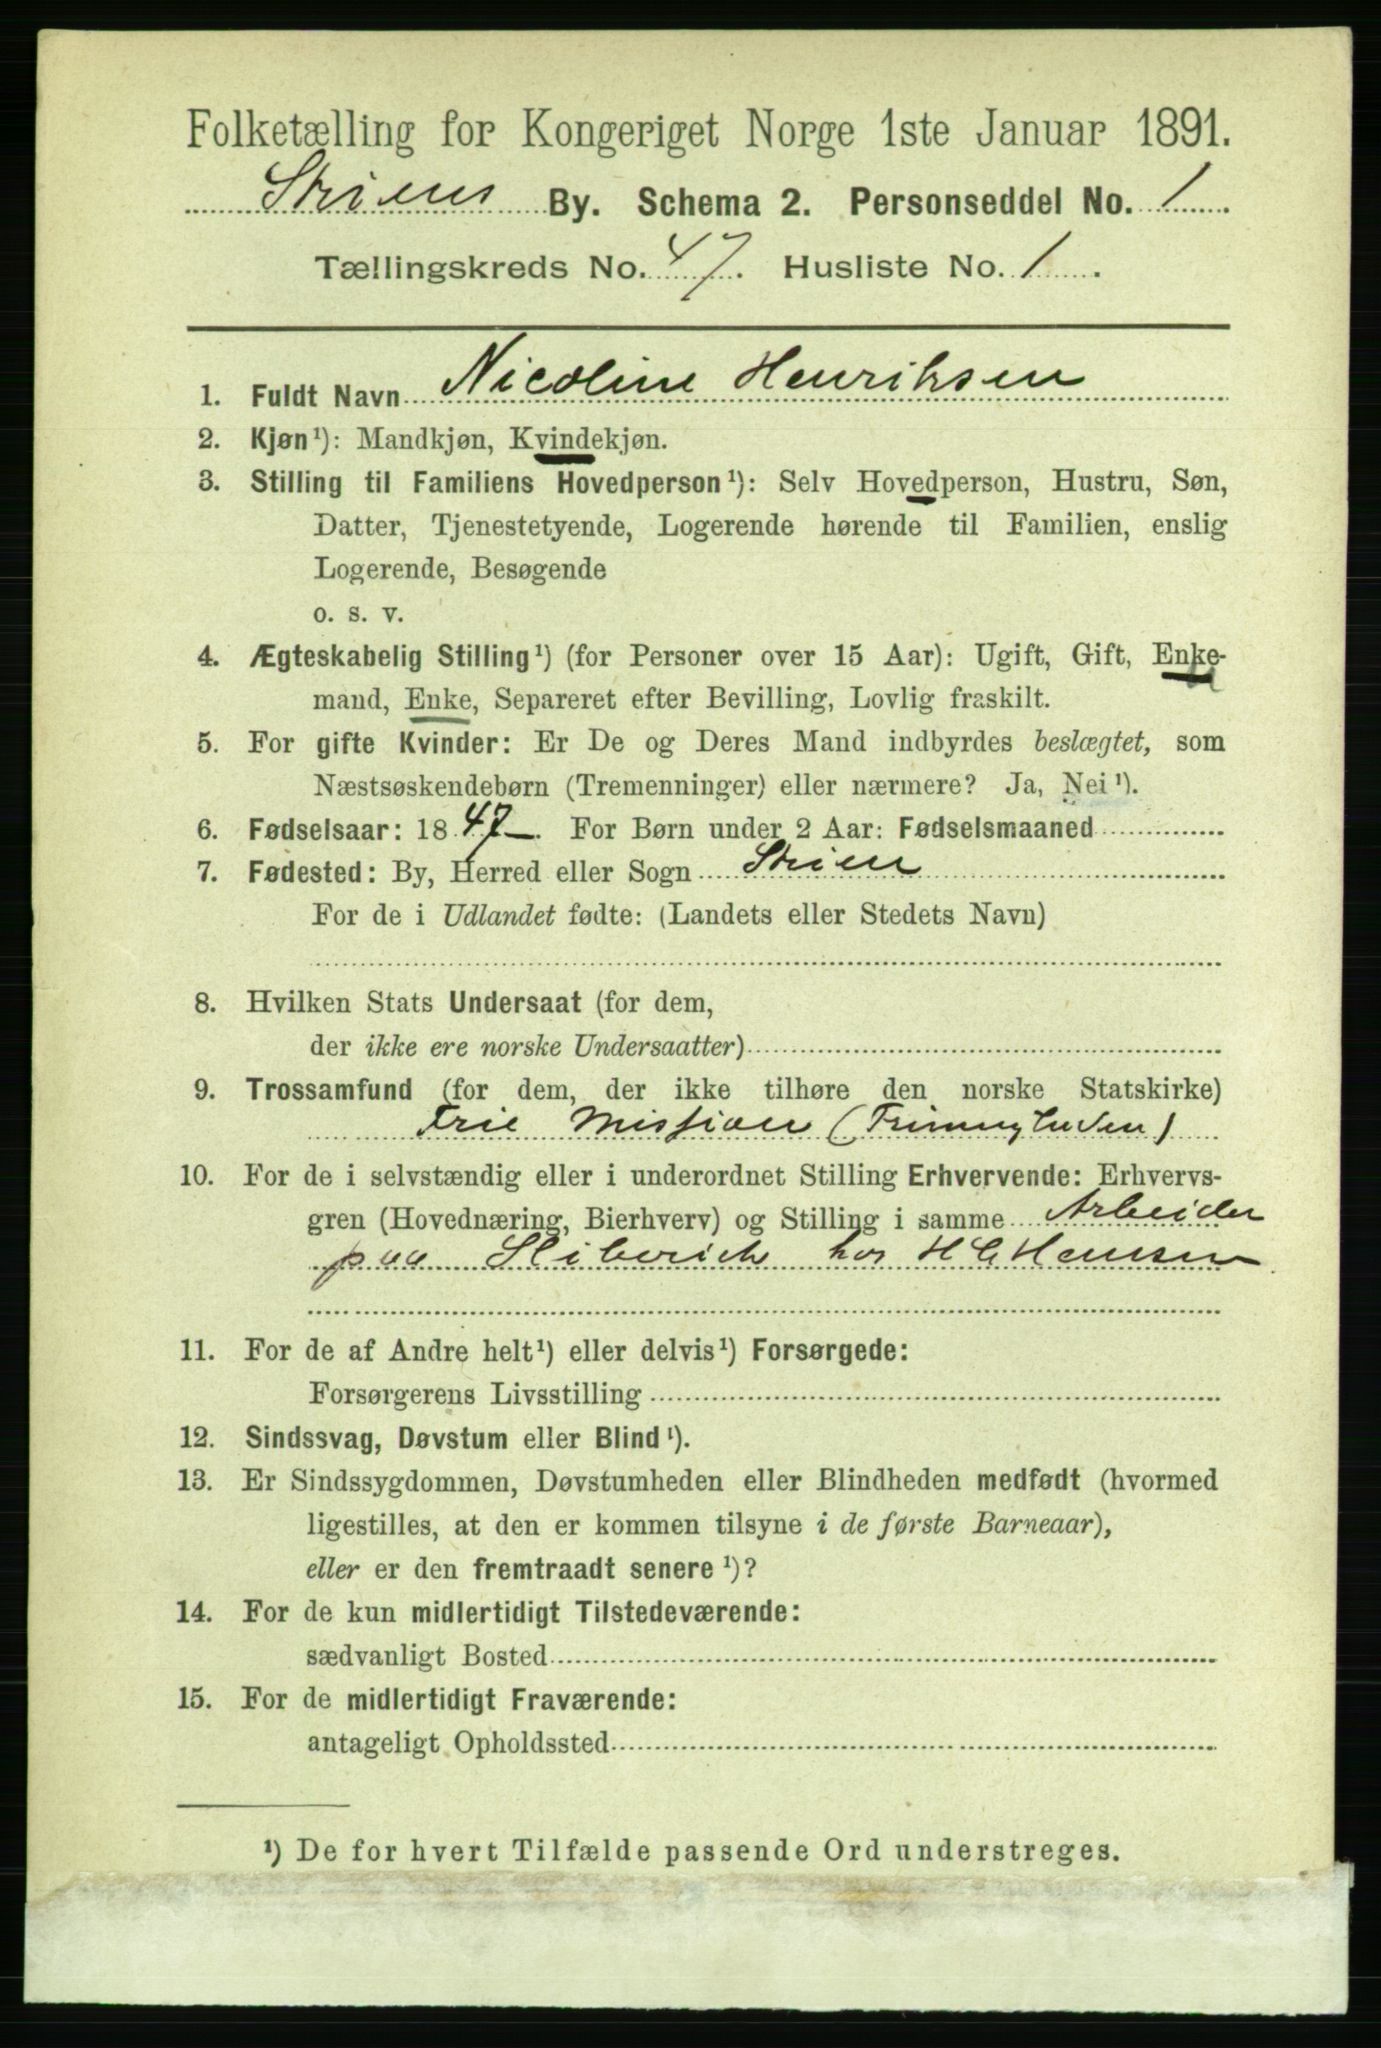 Folketælling for Kongeriget Norge 1ste Januar 1891.
Skiens By. Schema 2. Personseddel No. 1.
Tællingskreds No. 47. Husliste No. 1.
1. Fuldt Navn Nicoline Henriksen
2. Kjøn¹): Mandkjøn, Kvindekjøn.
3. Stilling til Familiens Hovedperson¹): Selv Hovedperson, Hustru, Søn,
Datter, Tjenestetyende, Logerende hørende til Familien, enslig
Logerende, Besøgende
o. s. v.
4. Ægteskabelig Stilling¹) (for Personer over 15 Aar): Ugift, Gift, Enke-
mand, Enke, Separeret efter Bevilling, Lovlig fraskilt.
5. For gifte Kvinder: Er De og Deres Mand indbyrdes beslægtet, som
Næstsøskendebørn (Tremenninger) eller nærmere? Ja, Nei¹).
6. Fødselsaar: 1847. For Børn under 2 Aar: Fødselsmaaned
7. Fødested: By, Herred eller Sogn Skien
For de i Udlandet fødte: (Landets eller Stedets Navn)
8. Hvilken Stats Undersaat (for dem,
der ikke ere norske Undersaatter)
9. Trossamfund (for dem, der ikke tilhøre den norske Statskirke)
Frie Mission
10. For de i selvstændig eller i underordnet Stilling Erhvervende: Erhvervs-
gren (Hovednæring, Bierhverv) og Stilling i samme Arbeider
paa Sliberich hos H C Hansen
11. For de af Andre helt¹) eller delvis¹) Forsørgede:
Forsørgerens Livsstilling
12. Sindssvag, Døvstum eller Blind¹).
13. Er Sindssygdommen, Døvstumheden eller Blindheden medfødt (hvormed
ligestilles, at den er kommen tilsyne i de første Barneaar),
eller er den fremtraadt senere¹)?
14. For de kun midlertidigt Tilstedeværende:
sædvanligt Bosted
15. For de midlertidigt Fraværende:
antageligt Opholdssted
¹) De for hvert Tilfælde passende Ord understreges.